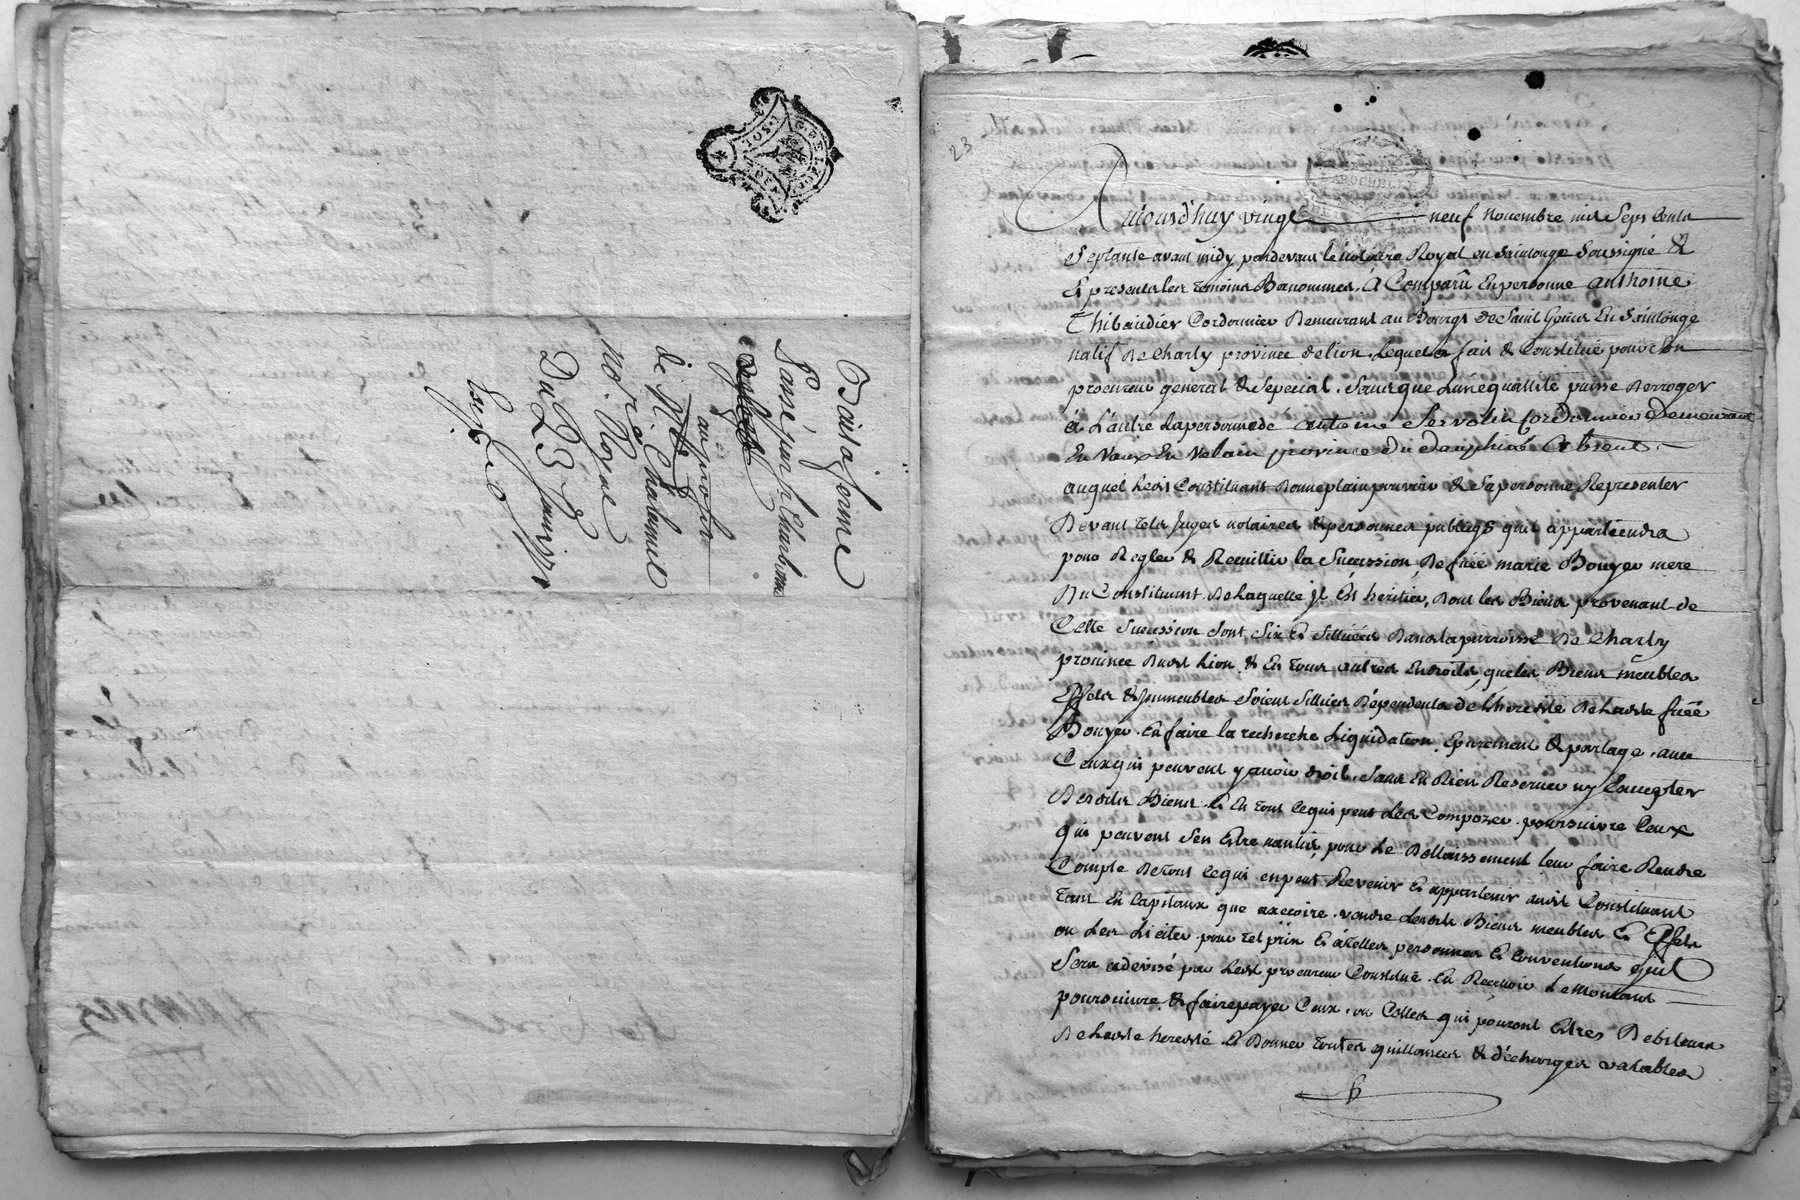 Bail a ferme
Passé par Charbonne
au profit
de Mre Chalamel
no.re Royal
Du 23 Janv.
23
Aujourd'huy vingt neuf novembre mil Sept Cents
Septante avant midy pardevant le notaire Royal en Saintonge Soussigné &
Et presents les temoins Banommés, à Comparû En personne anthoine
Thibaudier Cordonnier Demeurant au Bourgt de Saint Genis En Saintonge
natif De Charly province de lion. Lequel a fait & Constitué pour Son
procureur general & Special. Sans que Lune quallité puisse Derroger
à L'autre La personne de antoine Servolin Cordonnier Demeurant
En Vaux En Velain province du dauphiné absent.
auquel Ledt Constituant Donne plain pouvoir & Sa personne Representer
Devant tels Juges notaires & personnes publiqs quil appartiendra
pour Regler & Recuillir la Sucession De fuée marie Bouyer mere
Du Constituant De Laquelle il Est heritier, Dont les Biens provenant de
Cette Sucession Sont Six Et Sittuées Dans la parroisse De Charly
province Dudt Lion & En tous autres Endroits, que les Biens meubles
Effets & Jmmeubles Soient Sittués Dépendents de L'heredité De Ladte fuée
Bouyer. En faire la recherche Liquidation. Epurement & partage. avec
Ceux qui peuvent y avoir droit. Sans En Rien Reserver ny Excepter
Desdits Biens. Et En tout Ce qui peut Les Composer. poursuivre Ceux
qui peuvent Sen Estre nantis, pour Le Dellaissement leur faire Rendre
Compte De tout Ce qui en peut Revenir Et appartenir audt Constituant
tant En Capitaux que accoire. vendre Lesdts Biens meubles Et Effets
ou Les Liciter pour tel prix Et à telles personnes Et Conventions quil
Sera advisé par Ledt procureur Constitué. En Recevoir Le montant
poursuivre & faire payer Ceux ou Celles qui pouront Estres Debiteurs
De Ladte heredité. Et Donner toutes quittances & décharges valables